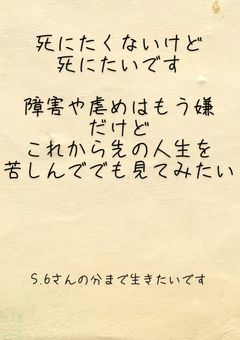 死にたくないけど
死にたいです
障害や虐めはもう嫌
だけど
これから先の人生を
苦しんででも見てみたい
S.6さんの分まで生きたいです